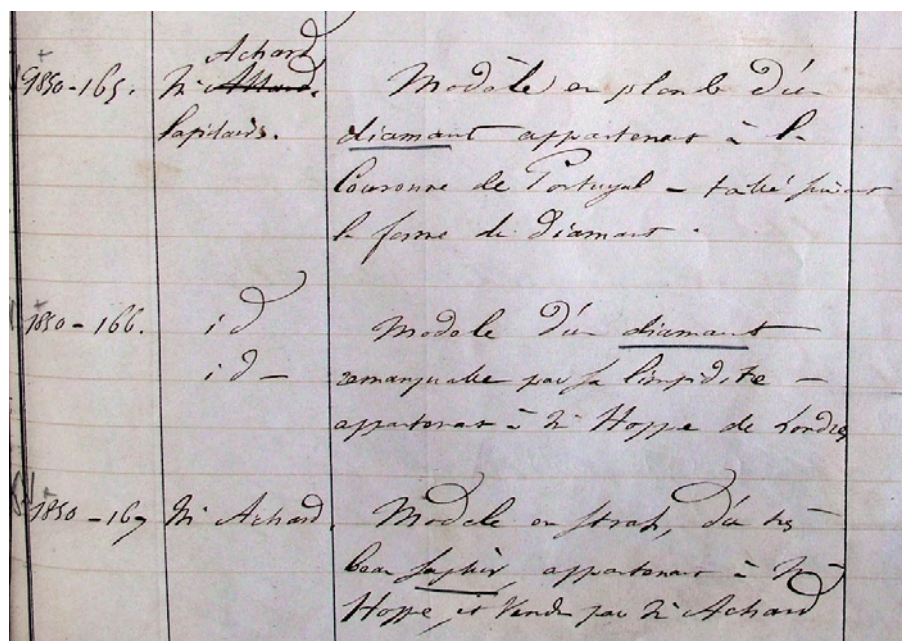 Achard
1850-165. Mr Allard. Modèle en plomb d'un
lapidaire. diamant appartenant à la
Couronne de Portugal – taillé suivant
la forme du diamant.
1850-166. id Modèle d'un diamant
id – remarquable par sa limpidité –
appartenant à Mr Hoppe de Londres
1850-167 Mr Achard. Modèle en strass, d'un très
beau saphir, appartenant à Mr
Hoppe, et vendu par Mr Achard